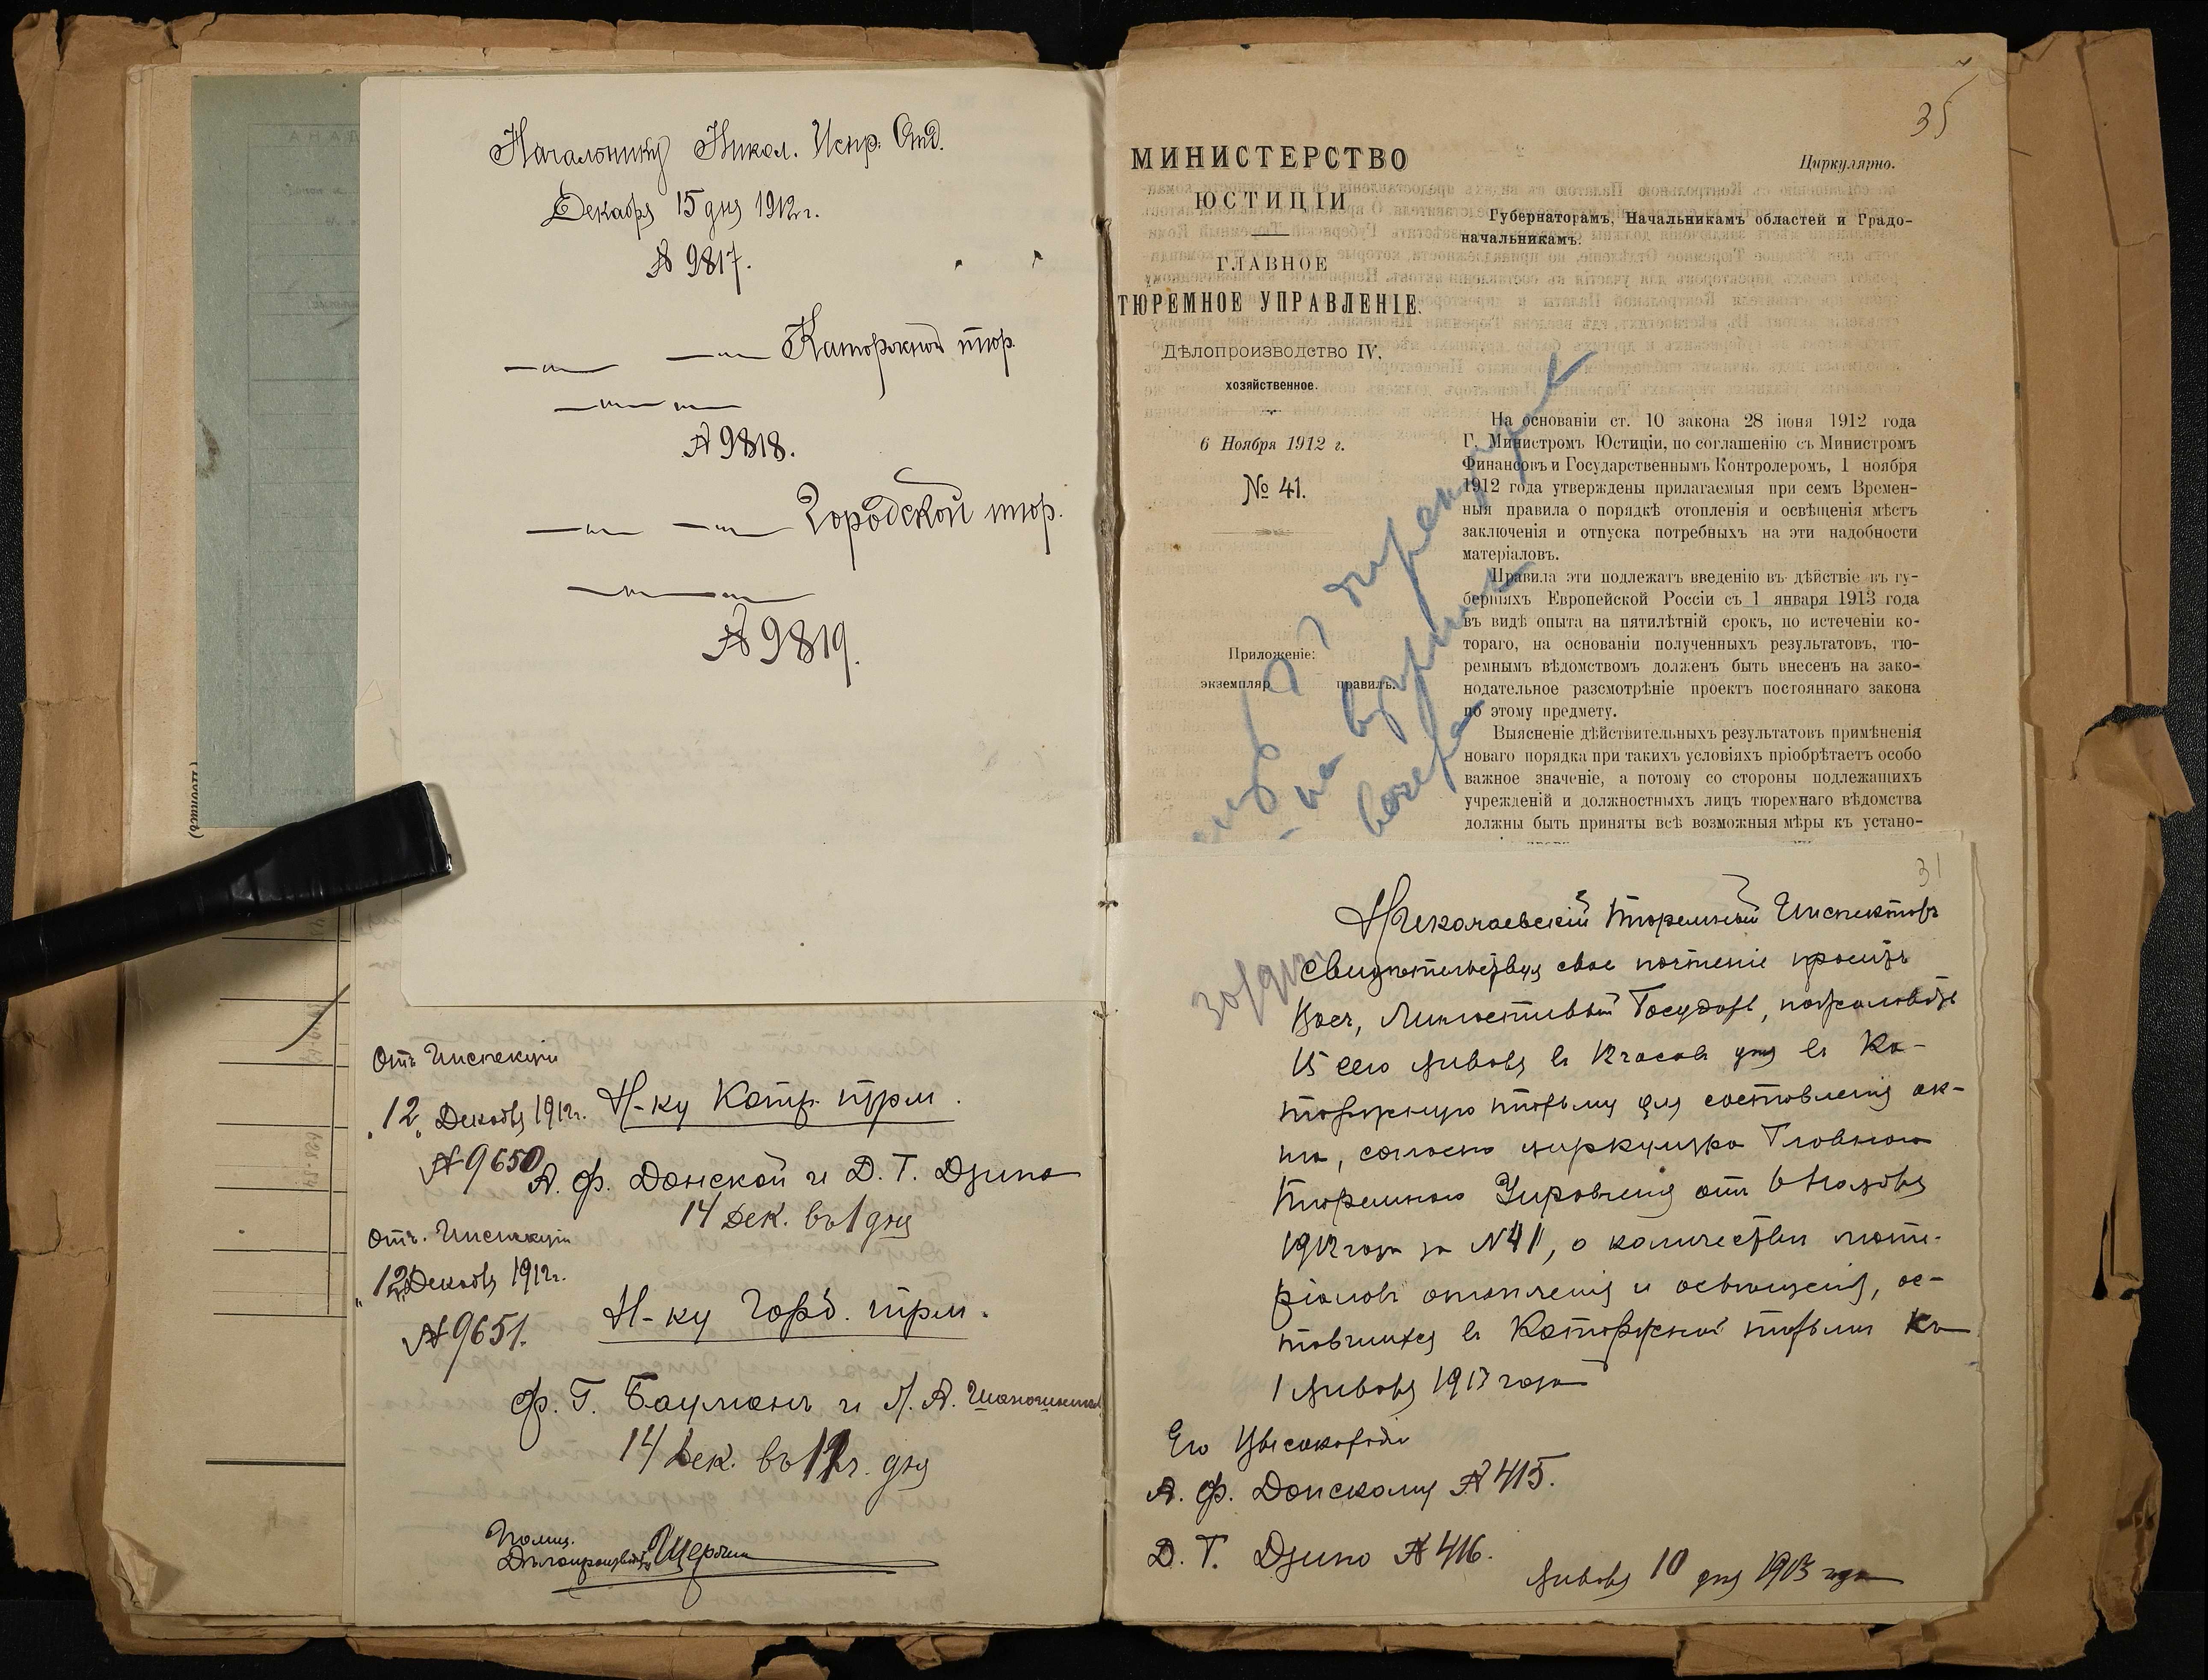 Начальнику Никол. Испр. Отд.
Декабря 15 дня 1912 г.
№ 9817.
Каторжной тюр.
№ 9818.
Городской тюр.
№ 9819.
Отъ Инспекціи
"12" Декабря 1912 г. Н-ку Катр. тюрм.
№ 9650
А. Ф. Донской и Д. Т. Дзино
14 Дек. въ 1 дня
Отъ Инспекціи
"12" Декабря 1912 г.
Н-ку Город. тюрм.
№ 9651.
Ф. Г. Бауманъ и
14 Дек. въ дня
Помщ.
Дѣлопроизвод.
35
МИНИСТЕРСТВО
ЮСТИЦІИ
ГЛАВНОЕ
ТЮРЕМНОЕ УПРАВЛЕНІЕ.
Дѣлопроизводство IV,
хозяйственное.
6 Ноября 1912 г.
№ 41.
Приложеніе:
экземпляр правилъ.
Циркулярно.
Губернаторамъ, Начальникамъ областей и Градо-
начальникамъ.
На основаніи ст. 10 закона 28 іюня 1912 года
Г. Министромъ Юстиціи, по соглашенію съ Министромъ
Финансовъ и Государственнымъ Контролеромъ, 1 ноября
1912 года утверждены прилагаемыя при семъ Времен-
ныя правила о порядкѣ отопленія и освѣщенія мѣстъ
заключенія и отпуска потребныхъ на эти надобности
матеріаловъ.
Правила эти подлежатъ введенію въ дѣйствіе въ гу-
берніяхъ Европейской Россіи съ 1 января 1913 года
въ видѣ опыта на пятилѣтній срокъ, по истеченіи ко-
тораго, на основаніи полученныхъ результатовъ, тю-
ремнымъ вѣдомствомъ долженъ быть внесенъ на зако-
нодательное разсмотрѣніе проектъ постояннаго закона
по этому предмету.
Выясненіе дѣйствительныхъ результатовъ примѣненія
новаго порядка при такихъ условіяхъ пріобрѣтаетъ особо
важное значеніе, а потому со стороны подлежащихъ
учрежденій и должностныхъ лицъ тюремнаго вѣдомства
должны быть приняты всѣ возможныя мѣры къ устано-
31
Николаевскій Тюремный Инспекторъ
свидѣтельствуя свое почтеніе проситъ
Васъ, Милостивый Государь, пожаловать
15 сего Января въ 12 часовъ дня въ Ка-
торжную тюрьму для составленія ак-
та, согласно циркуляра Главнаго
Тюремнаго Управленія отъ 6 Ноября
1912 года за № 41, о количествѣ мате-
ріаловъ отопленія и освѣщенія, ос-
тавшихся въ Каторжной тюрьмѣ къ
1 Января 1913 года
Его Высокородію
А. Ф. Донскому № 415.
Д. Т. Дзино № 416.
Января 10 дня 1913 года